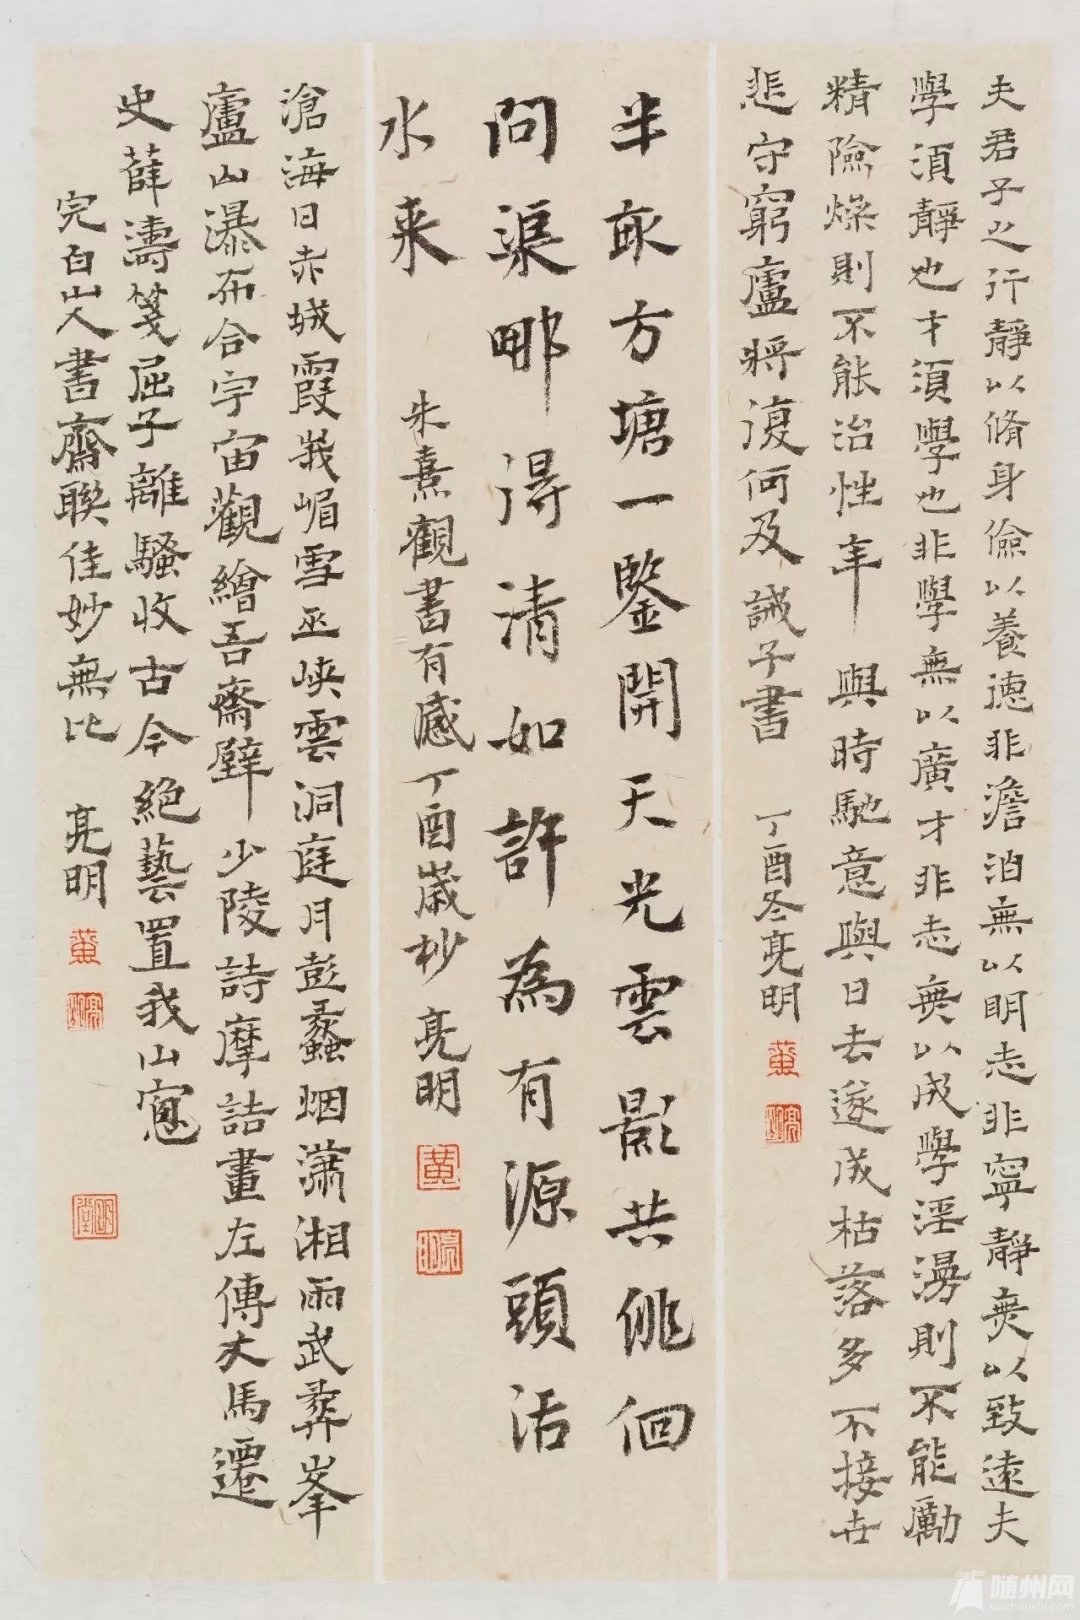 夫君子之行靜以脩身儉以養德非澹泊無以明志非寧靜無以致遠夫
學須靜也才須學也非學無以廣才非志無以成學淫漫則不能勵
精險燥則不能治性年與時馳意與日去遂成枯落多不接世
悲守窮廬將復何及誡子書
丁酉冬亮明
半畝方塘一鑒開天光雲影共徘徊
問渠那得清如許為有源頭活
水来
朱熹觀書有感丁酉歲杪亮明
滄海日赤城霞峩嵋雪巫峽雲洞庭月彭蠡烟瀟湘雨武彝峯
廬山瀑布合宇宙觀繪吾齋壁少陵詩摩詰畫左傳文馬遷
史薛濤箋屈子離騷收古今絕藝置我山窓
完白山人書齋聯佳妙無比亮明
随州网
suizhoushi.com